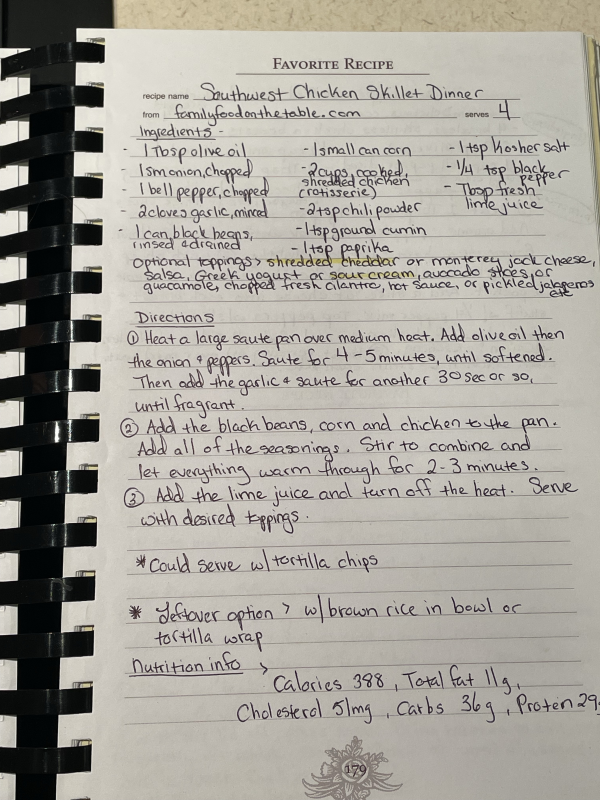 FAVORITE RECIPE
recipe name Southwest Chicken Skillet Dinner
from familyfoodonthetable.com serves 4
Ingredients -
- 1 Tbsp olive oil
- 1 sm onion, chopped
- 1 bell pepper, chopped
- 2 cloves garlic, minced
- 1 can black beans,
rinsed & drained
- 1 small can corn
- 2 cups, cooked,
shredded chicken
(rotisserie)
- 2 tsp chili powder
- 1 tsp ground cumin
- 1 tsp paprika
- 1 tsp Kosher salt
- 1/4 tsp black
pepper
- Tbsp fresh
lime juice
Optional toppings > shredded cheddar or monterey jack cheese,
salsa, Greek yogurt or sour cream, avocado slices, or
guacamole, chopped fresh cilantro, hot sauce, or pickled jalapenos
etc
Directions
① Heat a large saute pan over medium heat. Add olive oil then
the onion & peppers. Saute for 4-5 minutes, until softened.
Then add the garlic & saute for another 30 sec or so,
until fragrant.
② Add the black beans, corn and chicken to the pan.
Add all of the seasonings. Stir to combine and
let everything warm through for 2-3 minutes.
③ Add the lime juice and turn off the heat. Serve
with desired toppings.
* Could serve w/ tortilla chips
* Leftover option > w/ brown rice in bowl or
tortilla wrap
Nutrition info >
Calories 388, Total fat 11g,
Cholesterol 51mg, Carbs 36g, Protein 29g
179